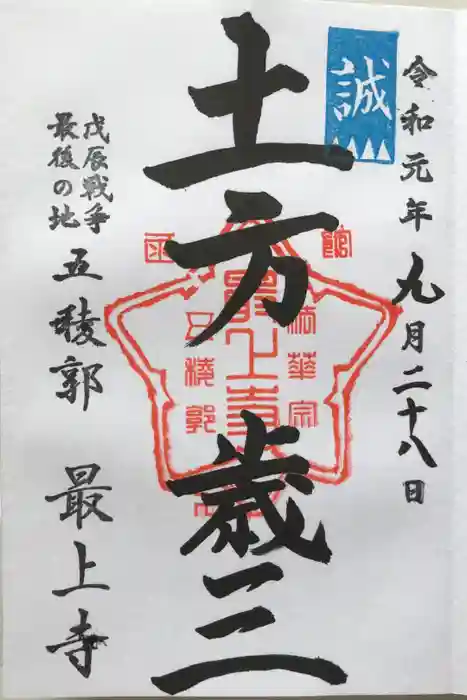 誠
令和元年九月二十八日
土方歳三
戊辰戦争
最後の地
五稜郭
最上寺
函館
法華宗
最上寺
五稜郭